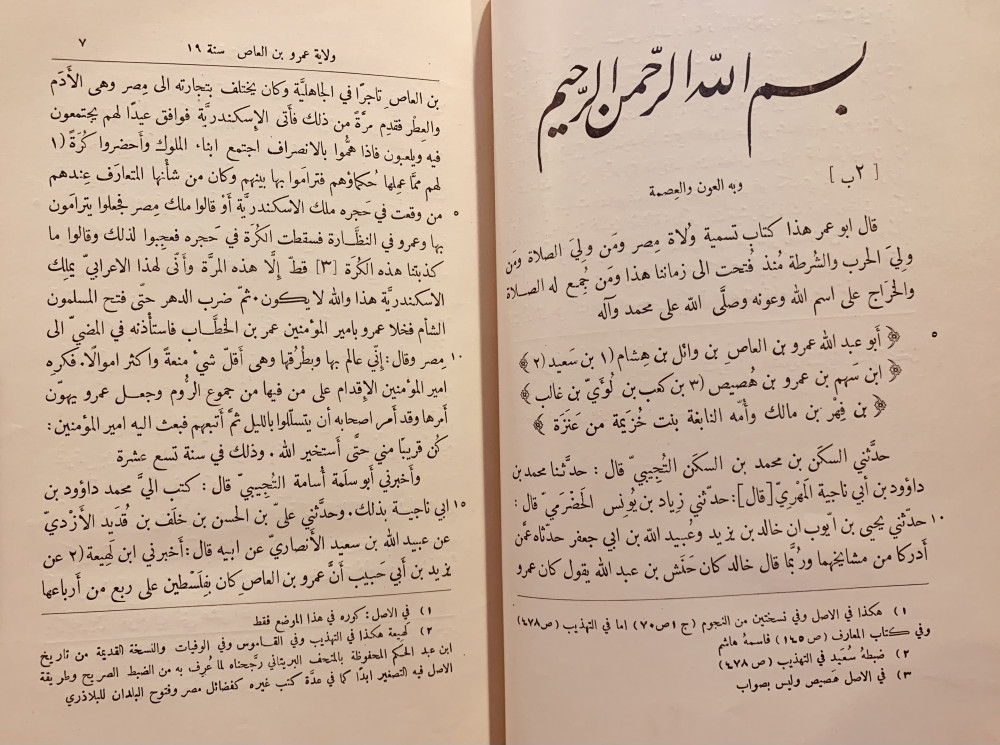 بسم الله الرحمن الرحيم
[ ٢ب ]
وبه العون والعِصمة
قال ابو عمر هذا كتاب تسمية وُلاة مِصر ومَن وِليَ الصلاة ومَن
وليَ الحرب والشُرطة مُنذ فُتحت الى زماننا هذا ومَن جُمِع له الصلاة
والخَراج على اسم الله وعونه وصلَّى الله على محمد وآله
﴿ أَبو عبد الله عمرو بن العاص بن وائل بن هِشام (١ بن سَعيد (٢ ﴾ ٥
﴿ ابن سَهم بن عمرو بن هُصيص (٣ بن كعب بن لُوَيّ بن غالب ﴾
﴿ بن فِهْر بن مالك وأمّه النابغة بنت خُزَيمة من عَنَزَة ﴾
حدَّثني السكَن بن محمد بن السكَن التُجِيبيّ قال : حدَّثنا محمد بن
داؤود بن أبي ناجية المَهْريّ [قال]: حدّثني زِياد بن يُونِس الحَضْرَميّ قال :
١٠ حدَّثني يحيى بن ايّوب ان خالد بن يزيد وعُبيد الله بن ابي جعفر حدّثاه عمَّن
أدركا من مشايخهما ورُبَّما قال خالد كان حَنَش بن عبد الله يقول كان عمرو
١) هكذا في الاصل وفي نسختين من النجوم (ج ١ ص ٧٠) اما في التهذيب (ص ٤٧٨)
وفي كتاب المعارف (ص ١٤٥) فاسمهُ هاشم
٢) ضبطهُ سُعَيد في التهذيب (ص ٤٧٨)
٣) في الاصل هَصيص وليس بصواب
ولاية عمرو بن العاص سنة ١٩ ٧
بن العاص تاجرًا في الجاهليَّة وكان يختلف بتجارته الى مِصر وهى الأَدَم
والعِطْر فقدِم مرَّةً من ذلك فأتى الإسكندريَّة فوافق عيدًا لهم يجتمعون
فيه ويلعبون فاذا همُّوا بالانصراف اجتمع ابناء الملوك وأَحضروا كُرَةً (١
لهم ممَّا عمِلها حُكماؤهم فترامَوا بها بينهم وكان من شأنها المتعارَف عِندهم
٥ من وقعت في حَجره ملك الاسكندريَّة أَوْ قالوا ملك مِصر فجعلوا يترامَون
بها وعمرو في النظَّارة فسقطت الكُرَة في حَجره فعجِبوا لذلك وقالوا ما
كذبتنا هذه الكُرَة [٣] قطّ إلَّا هذه المرَّة وأَنَّى لهذا الاعرابيّ يملِك
الاسكندريَّة هذا والله لا يكون. ثمّ ضرب الدهر حتَّى فتح المسلمون
الشأم فخلا عمرو بامير المؤمنين عمر بن الخطَّاب فاستأْذنه في المضيّ الى
١٠ مِصر وقال: إنّي عالم بها وبطُرُقها وهى أَقلّ شيْء منعةً واكثر اموالًا. فكره
امير المؤمنين الإقدام على من فيها من جموع الرُوم وجعل عمرو يهوّن
أمرها وقد أمر اصحابه أن يتسلّلوا بالليل ثمَّ أتبعهم فبعث اليه امير المؤمنين:
كُن قريبًا مني حتَّى أَستخير الله . وذلك في سنة تسع عشرة
وأَخبرني أبو سلَمة أُسامة التُجِيبيّ قال : كتب اليَّ محمد داؤود بن
١٥ ابي ناجية بذلك. وحدَّثني عليّ بن الحسن بن خلَف بن قُدَيد الأَزْديّ
عن عبيد الله بن سعيد الأَنصاريّ عن ابيه قال: أَخبرني ابن لَهِيعة (٢ عن
يزيد بن أبي حَبيب أَنَّ عمرو بن العاص كان بفِلَسْطين على ربع من أَرباعها
١) في الاصل: كوره في هذا الموضع فقط
٢) لَهيعة هكذا في التهذيب وفي القاموس وفي الوفيات والنسخة القديمة من تاريخ
ابن عبد الحكم المحفوظة بالمتحف البريتاني رجَّحناه لما عُرِف به من الضبط الصريح وطريقة
الاصل فيه التصغير ابدًا كما في عدَّة كتب غيره كفضائل مصر وفتوح البلدان للبلاذري